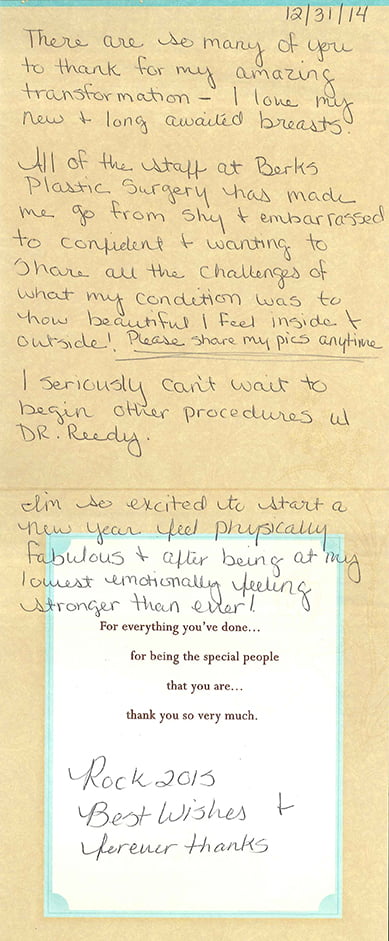 12/31/14
There are so many of you
to thank for my amazing
transformation - I love my
new & long awaited breasts.
All of the staff at Berks
Plastic Surgery has made
me go from shy & embarrassed
to confident & wanting to
share all the challenges of
what my condition was to
how beautiful I feel inside &
outside! Please share my pics anytime
I seriously can't wait to
begin other procedures w/
DR. Reedy.
I'm so excited to start a
new year feel physically
fabulous & after being at my
lowest emotionally feeling
stronger than ever!
For everything you've done...
for being the special people
that you are...
thank you so very much.
Rock 2015
Best Wishes &
forever thanks